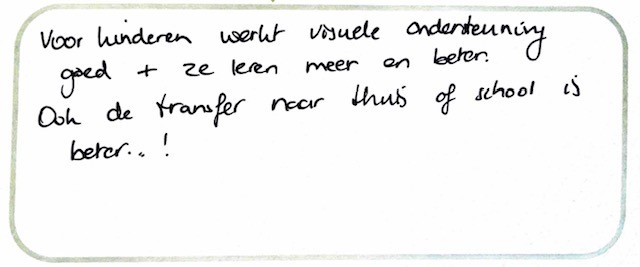 Voor kinderen werkt visuele ondersteuning
goed + ze leren meer en beter.
Ook de transfer naar thuis of school is
beter..!